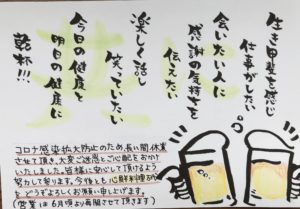 生き甲斐を感じ
仕事がしたい
会いたい人に
感謝の気持を
伝えたい
楽しく話し
笑っていたい
今日の健康と
明日の健康に
乾杯!!!
コロナ感染拡大防止のため長い間休業
させて頂き、大変ご迷惑とご心配をおかけ
いたしました。皆様に安心して頂けるよう
努力して参ります。今後とも心鮮料理
をどうぞよろしくお願い申し上げます。
(営業は6月頃より再開させて頂きます)